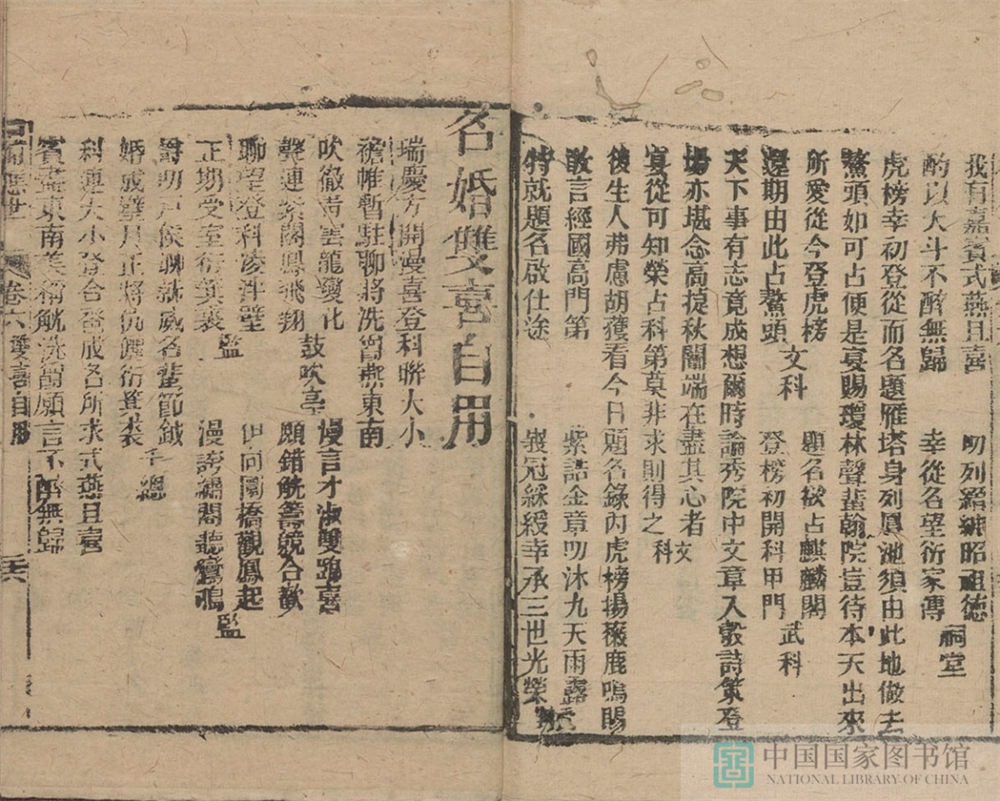 我有嘉賓式燕且喜　叨列縉紳昭祖德
酌以大斗不醉無歸　幸從名望衍家傳　祠堂
虎榜幸初登從而名題雁塔身列鳳池須由此地做去
鰲頭如可占便是宴賜瓊林聲蜚翰院豈待本天出來
所愛從今登虎榜　題名欲占麒麟閣
還期由此占鰲頭　文科　登榜初開科甲門　武科
天下事有志竟成想爾時論秀院中文章入彀詩策登
場亦堪念高掟秋闈端在盡其心者
宴從可知榮占科第莫非求則得之　文科
後生人弗慮胡獲看今日題名錄內虎榜揚徽鹿鳴賜
敢言經國高門第　紫誥金章叨沐九天雨露
特就題名啟仕途　峩冠綵綬幸承三世光榮
名婚雙喜自用
瑞慶方開慢喜登科聯大小
襜帷暫駐聊將洗斝燕東南
吹徹青雲龍變化　鼓吹亭　慢言才淑雙蹈喜
聲連紫閣鳳飛翔　願錯觥籌兢合歡
聊望登科凌泮璧　伊向圜橋觀鳳起
正期受室衍箕裘　監　漫誇繡閣聽鸞鳴　監
婚成璧月正將伉儷衍箕裘
科連大小登合巹成名所求式燕且喜
賓盡東南美稱觥洗斝願言不醉無歸
卷六　雙喜自用
中国国家图书馆
NATIONAL LIBRARY OF CHINA